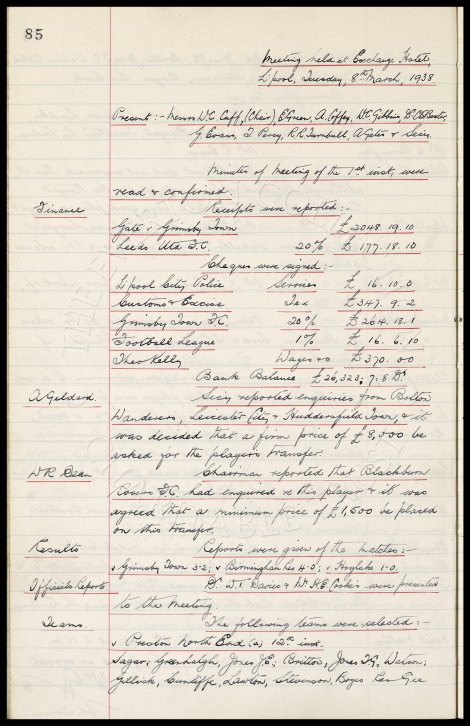 85
Meeting held at Exchange Hotel,
L'pool, Tuesday, 8th March, 1938.
Present:- Messrs W.C. Cuff, (Chair), E. Green, A. Coffey, Dr. C.S. Baxter,
G. Evans, T. Percy, R.R. Turnbull, A. Gates & Secy.
Minutes of Meeting of the 1st inst, were
read & confirmed.
Finance Receipts were reported:-
Gate v Grimsby Town £2048.19.10
Leeds Utd F.C. 20% £ 177.18.10
Cheques were signed:-
L'pool City Police Services £ 16.10.0
Customs & Excise Tax £347.9.2
Grimsby Town F.C. 20% £264.18.1
Football League 1% £ 16.6.10
Theo Kelly Wages £370.00
Bank Balance £26,323:7:8 Dr
A Geldard. Secy reported enquiries from Bolton
Wanderers, Leicester City & Huddersfield Town, & it
was decided that a firm price of £8,000 be
asked for the players transfer.
W.R. Dean Chairman reported that Blackburn
Rovers F.C. had enquired re this player & it was
agreed that a minimum price of £1,500 be placed
on this transfer.
Results Reports were given of the Matches:-
v Grimsby Town 3-2; v Birmingham Res 4-0; v Hoylake 1-0.
Officials Reports. W. Davies & H.E. Cooke's were presented
to the Meeting.
Teams. The following teams were selected:-
v Preston North End (a) 12th inst.
Sagar; Greenhalgh, Jones J.E; Britton, Jones T.G, Watson;
Gillick, Cunliffe, Lawton, Stevenson, Boyes Res Gee